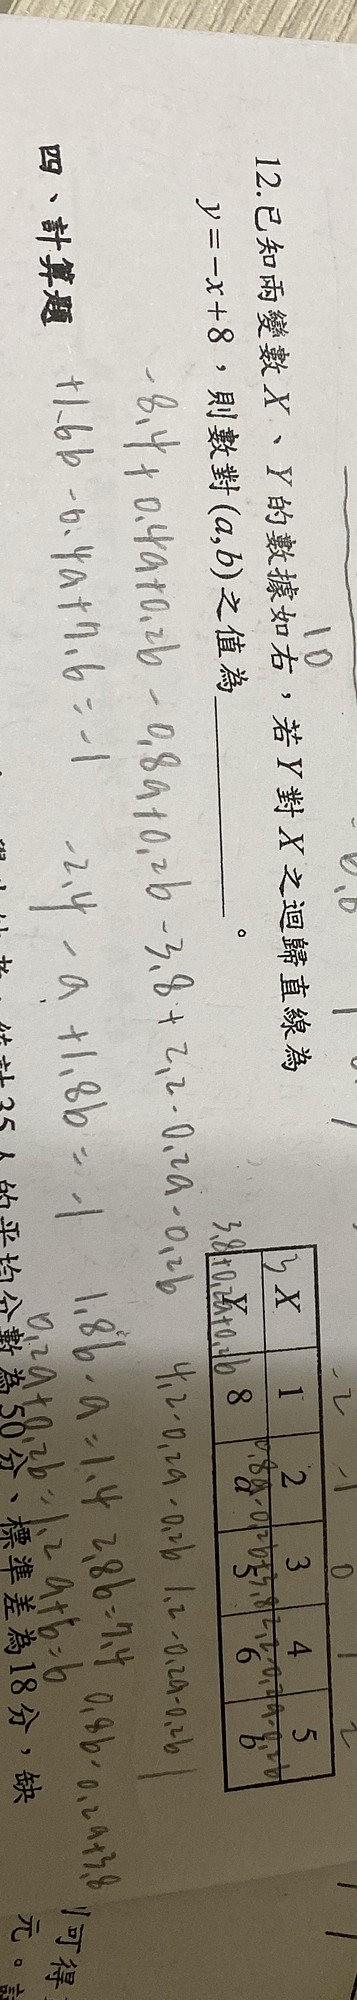 12.已知兩變數X、Y的數據如右,若Y對X之迴歸直線為
y=-x+8,則數對(a,b)之值為________。
X 1 2 3 4 5
Y 8 a 5 6 b
10
-2 -1 0 1 2
3.8+0.2a+0.2b
-8.4+0.4a+0.2b-0.8a+0.2b-3.8+2.2-0.2a-0.2b
4.2-0.2a-0.2b 1.2-0.2a-0.2b
四、計算題
+1.6b-0.4a+7.6=-1
-2.4-a+1.8b=-1
1.8b-a=1.4 2.8b=7.4 0.8b-0.2a+3.8
0.2a+0.2b=1.2 a+b=6
35人的平均分數為50分、標準差為18分,缺
可得
元。